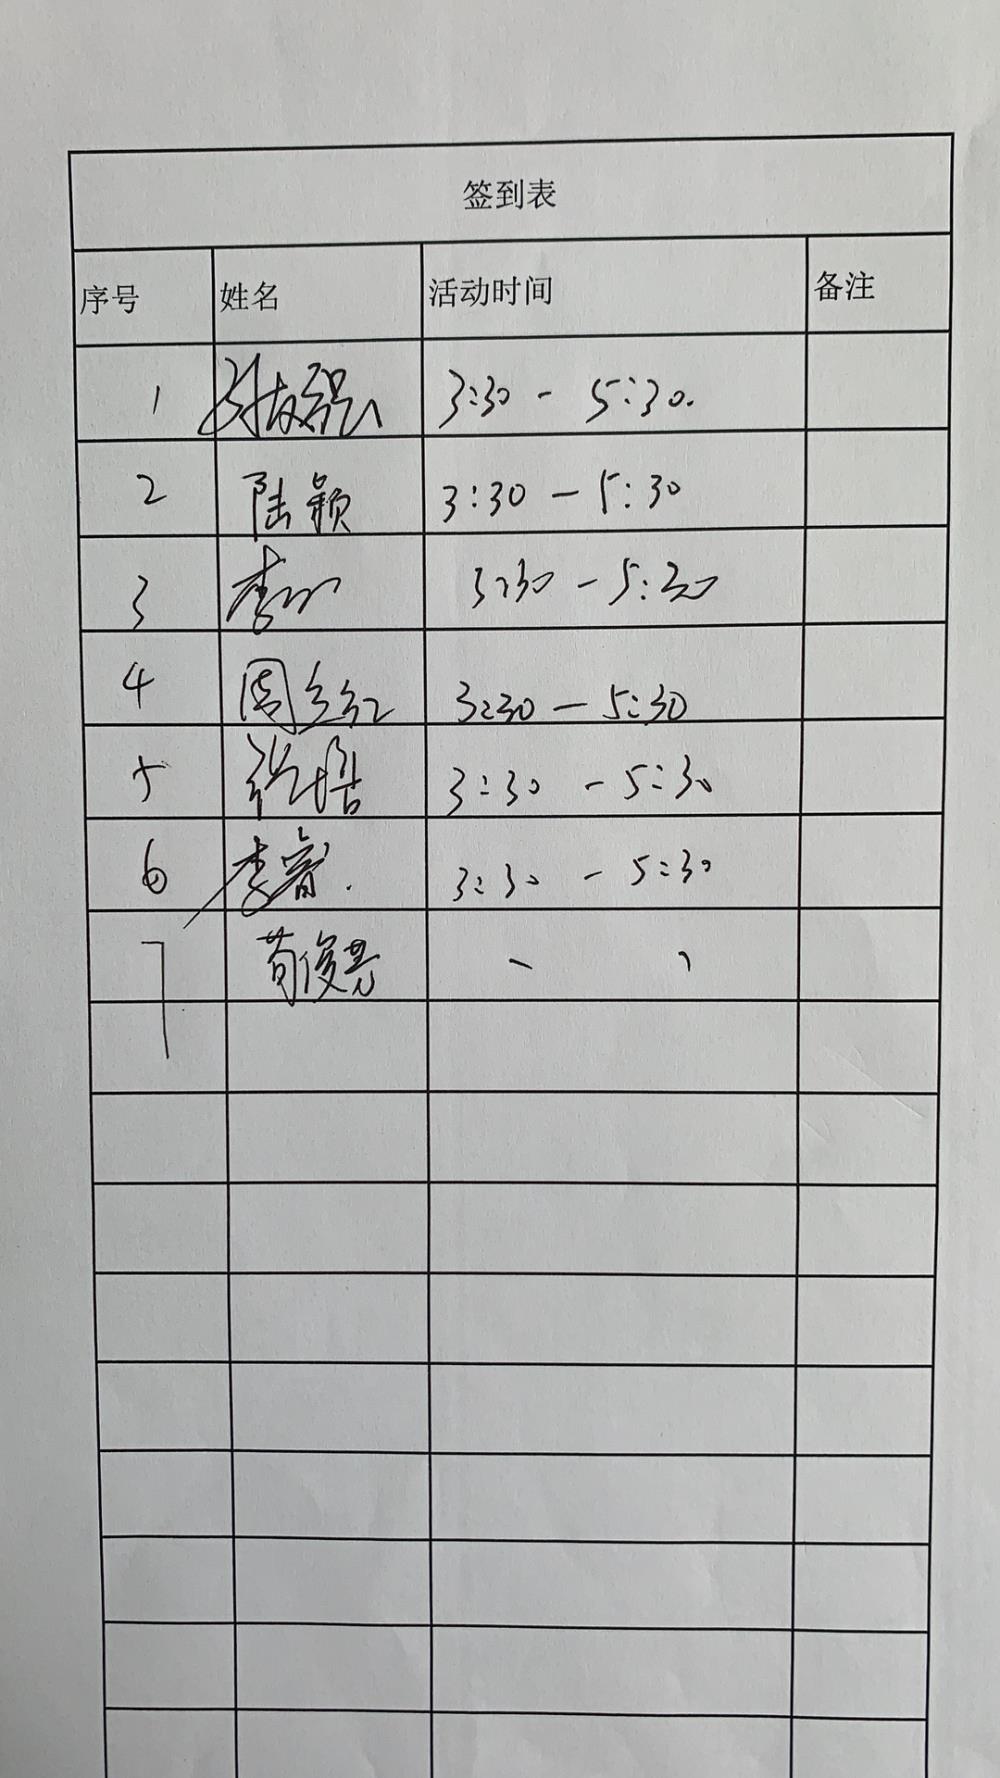 签到表
序号 姓名 活动时间 备注
1 3:30 - 5:30.
2 陆颖 3:30 - 5:30
3 李 3:30 - 5:30
4 周 红 3:30 - 5:30
5 3:30 - 5:30
6 李睿. 3:30 - 5:30
7 苟俊亮 、 、